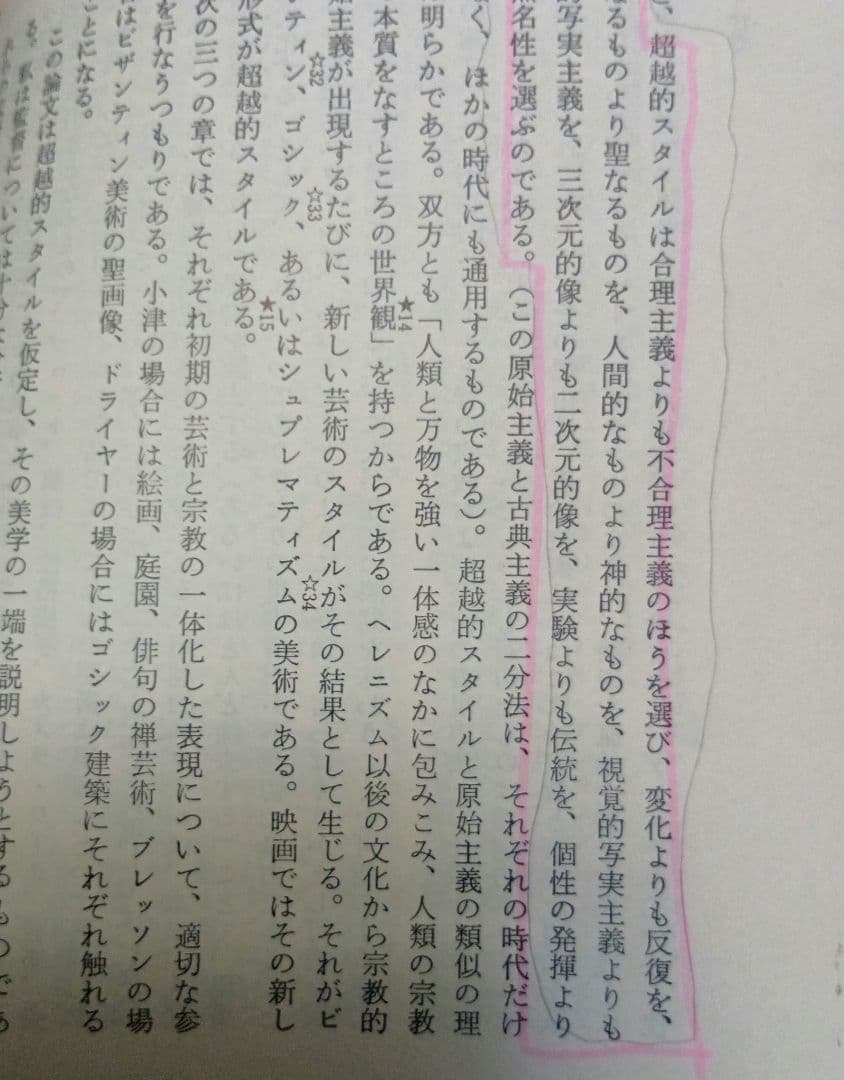 、超越的スタイルは合理主義よりも不合理主義のほうを選び、変化よりも反復を、
なるものより聖なるものを、人間的なものより神的なものを、視覚的写実主義よりも
的写実主義を、三次元的像よりも二次元的像を、実験よりも伝統を、個性の発揮より
無名性を選ぶのである。（この原始主義と古典主義の二分法は、それぞれの時代だけ
く、ほかの時代にも通用するものである）。超越的スタイルと原始主義の類似の理
明らかである。双方とも「人類と万物を強い一体感のなかに包みこみ、人類の宗教
本質をなすところの世界観」★14を持つからである。ヘレニズム以後の文化から宗教的
始主義が出現するたびに、新しい芸術のスタイルがその結果として生じる。それがビ
ティン☆32、ゴシック☆33、あるいはシュプレマティズム☆34の美術である。映画ではその新し
形式が超越的スタイルである。★15
次の三つの章では、それぞれ初期の芸術と宗教の一体化した表現について、適切な参
を行なうつもりである。小津の場合には絵画、庭園、俳句の禅芸術、ブレッソンの場
はビザンティン美術の聖画像、ドライヤーの場合にはゴシック建築にそれぞれ触れる
ことになる。
この論文は超越的スタイルを仮定し、その美学の一端を説明しようとするものであ
る。私は監督については